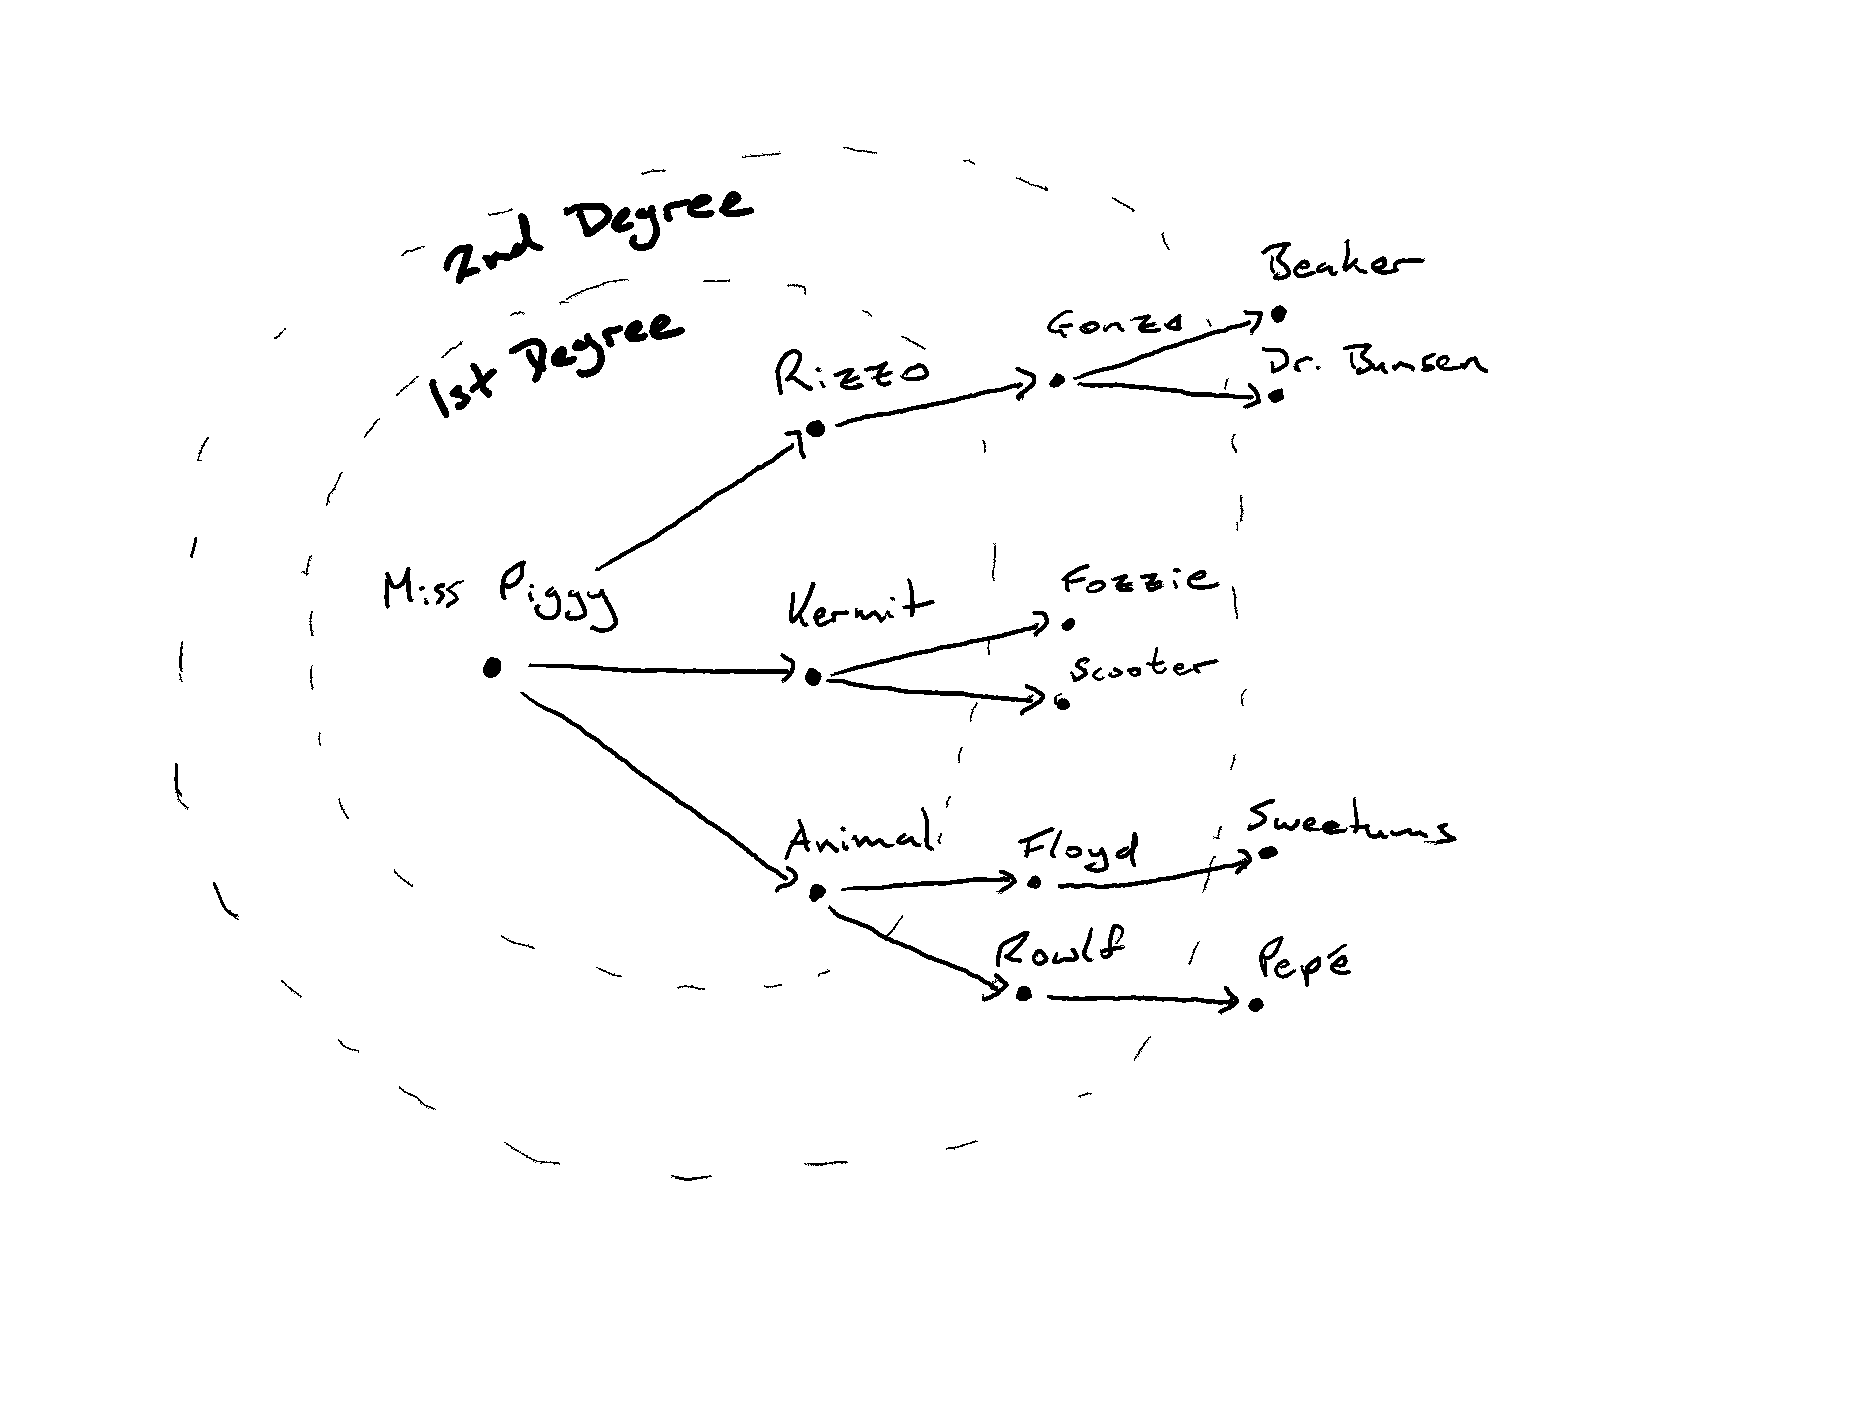 2nd Degree
1st Degree
Beaker
Gonzo
Dr. Bunsen
Rizzo
Miss Piggy
Kermit
Fozzie
Scooter
Animal
Floyd
Sweetums
Rowlf
Pepé